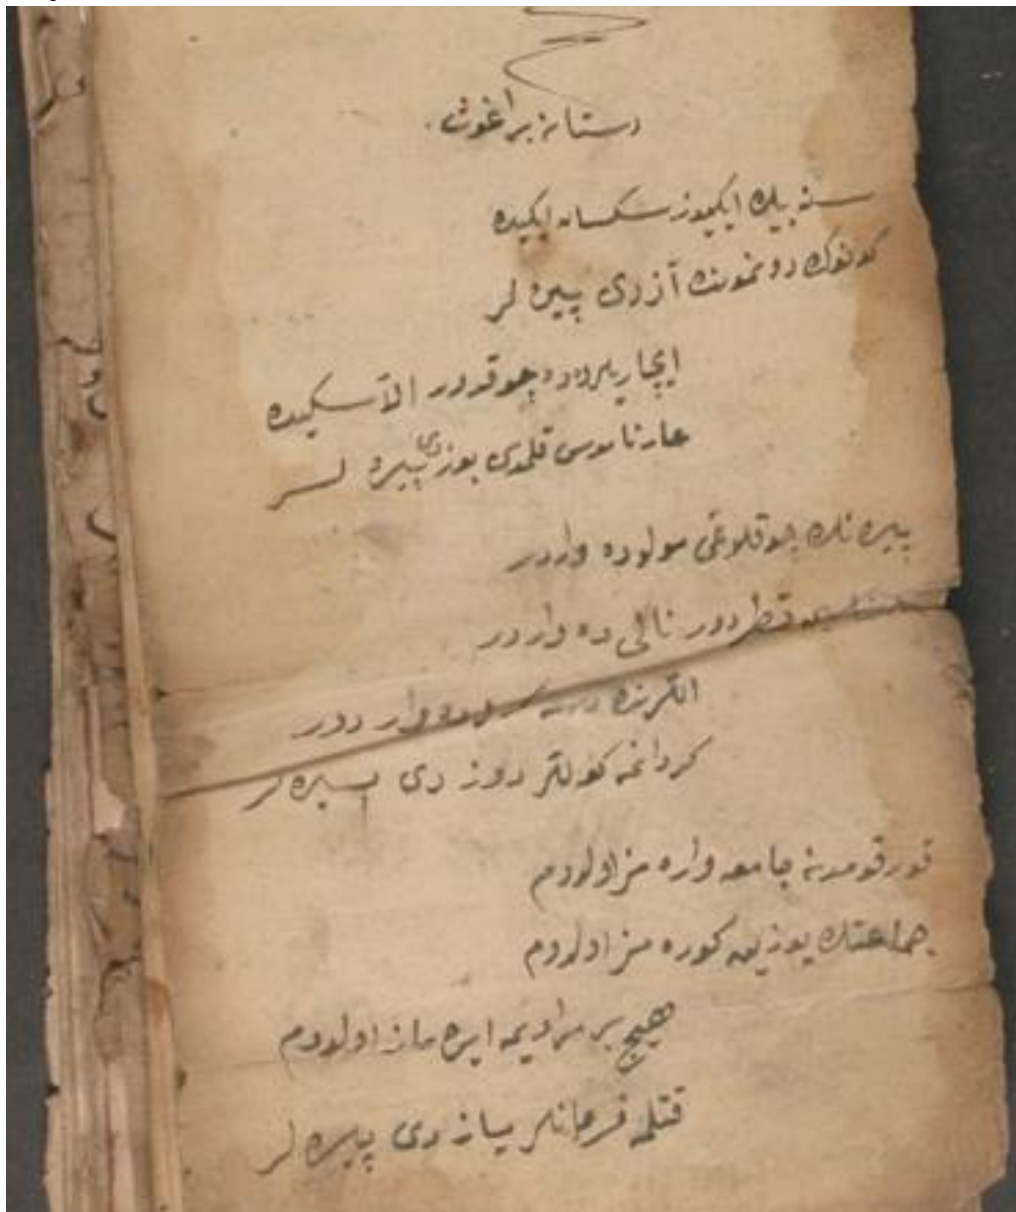 دستان براغوث.
سنه بيك ايكيوز سكسان ايكيده
كونوك دونمونده آزدى پيره لر
ايچاريده چوقدور الا سكيده
عار ناموس قلمدى بوزدى پيره لر
پيره نك چوقلوغى مولوده واردر
قطردور نالى ده واردر
اللرنده وار دور
كردانمه كوللر دوزدى پيره لر
قورقومدن جامعه واره مز اولدوم
جماعتك يوزين كوره مز اولدوم
هيچ بر مراديمه ايره ماز اولدوم
قتلمه فرمانلر يازدى پيره لر